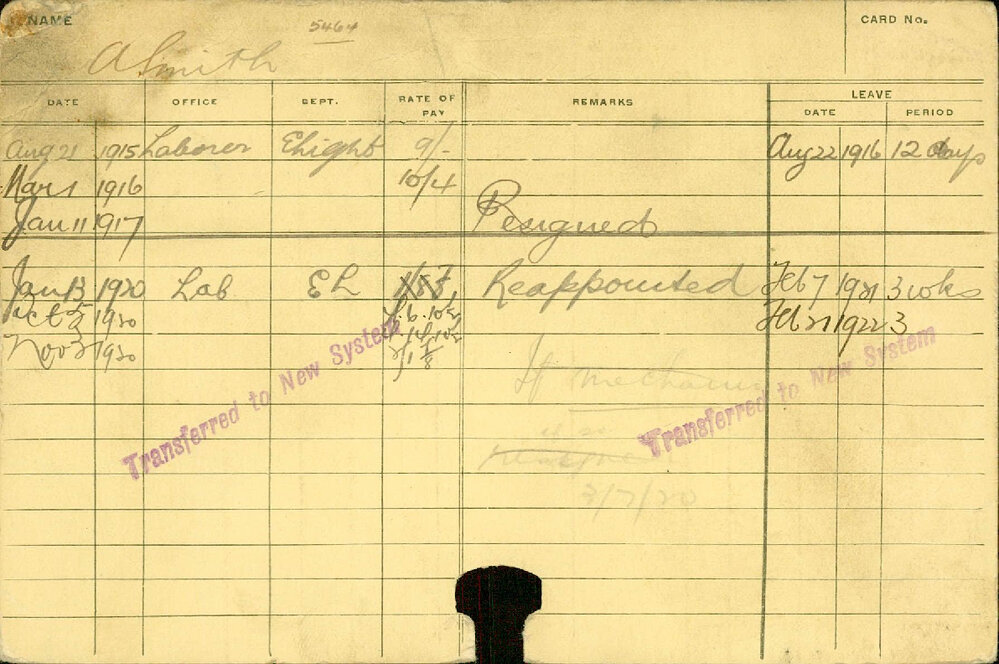 NAME
5464
CARD No.
A Smith
DATE OFFICE DEPT. RATE OF PAY REMARKS LEAVE
DATE PERIOD
Aug 21 1915 Laborer Elight 9/- Aug 22 1916 12 days
Mar 1 1916 10/4
Jan 11 1917 Resigned
Jan 13 1920 Lab EL Reappointed Feb 7 1921 3 wks
Oct 1920 Feb 21 1922 3
Nov 1920
Transferred to New System
Transferred to New System
If
3/7/20